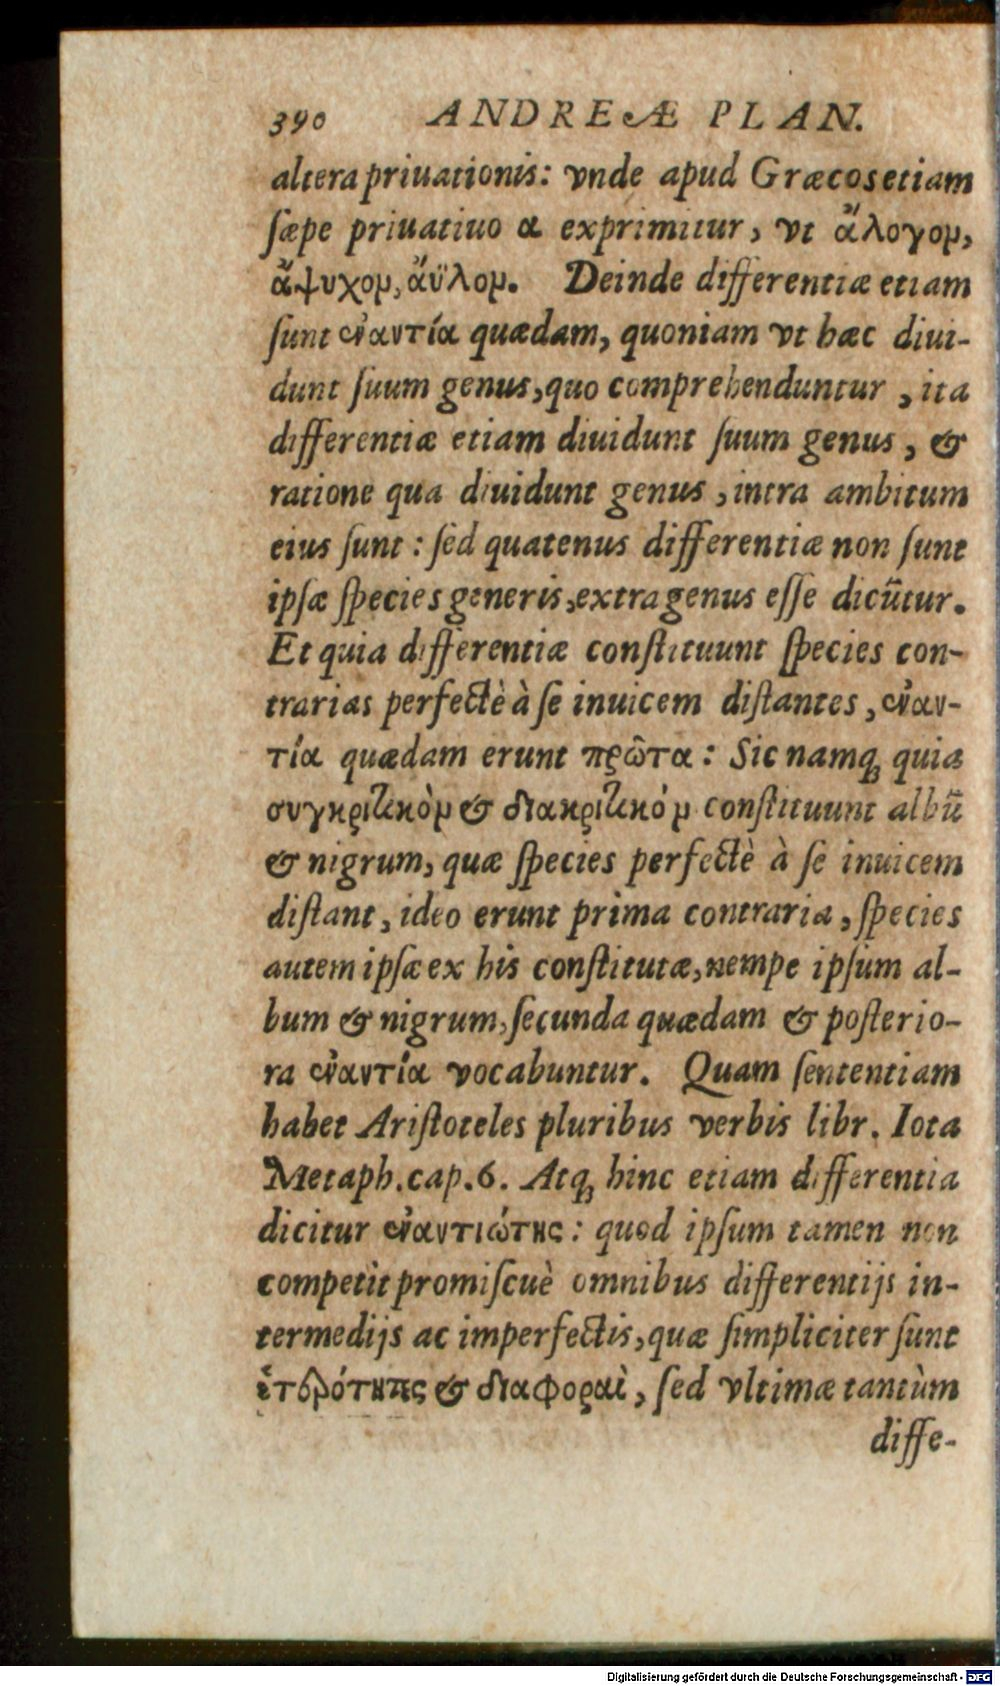 390 ANDREÆ PLAN.
altera priuationis: vnde apud Græcos etiam
ſæpe priuatiuo α exprimitur, vt ἄλογομ,
ἄψυχομ, ἄϋλομ. Deinde differentiæ etiam
ſunt ἐναντία quædam, quoniam vt hæc diui-
dunt ſuum genus, quo comprehenduntur, ita
differentiæ etiam diuidunt ſuum genus, &
ratione qua diuidunt genus, intra ambitum
eius ſunt: ſed quatenus differentiæ non ſunt
ipſæ ſpecies generis, extra genus eſſe dicūtur.
Et quia differentiæ conſtituunt ſpecies con-
trarias perfectè à ſe inuicem diſtantes, ἐναν-
τία quædam erunt πρῶτα: Sic namq; quia
συγκριτικὸμ & διακριτικόμ conſtituunt albū
& nigrum, quæ ſpecies perfectè à ſe inuicem
diſtant, ideo erunt prima contraria, ſpecies
autem ipſæ ex his conſtitutæ, nempe ipſum al-
bum & nigrum, ſecunda quædam & poſterio-
ra ἐναντία vocabuntur. Quam ſententiam
habet Ariſtoteles pluribus verbis libr. Iota
Metaph. cap. 6. Atq; hinc etiam differentia
dicitur ἐναντιότης: quod ipſum tamen non
competit promiſcuè omnibus differentijs in-
termedijs ac imperfectis, quæ ſimpliciter ſunt
ἑτερότητες & διαφοραὶ, ſed vltimæ tantùm
diffe-
Digitalisierung gefördert durch die Deutsche Forschungsgemeinschaft - DFG